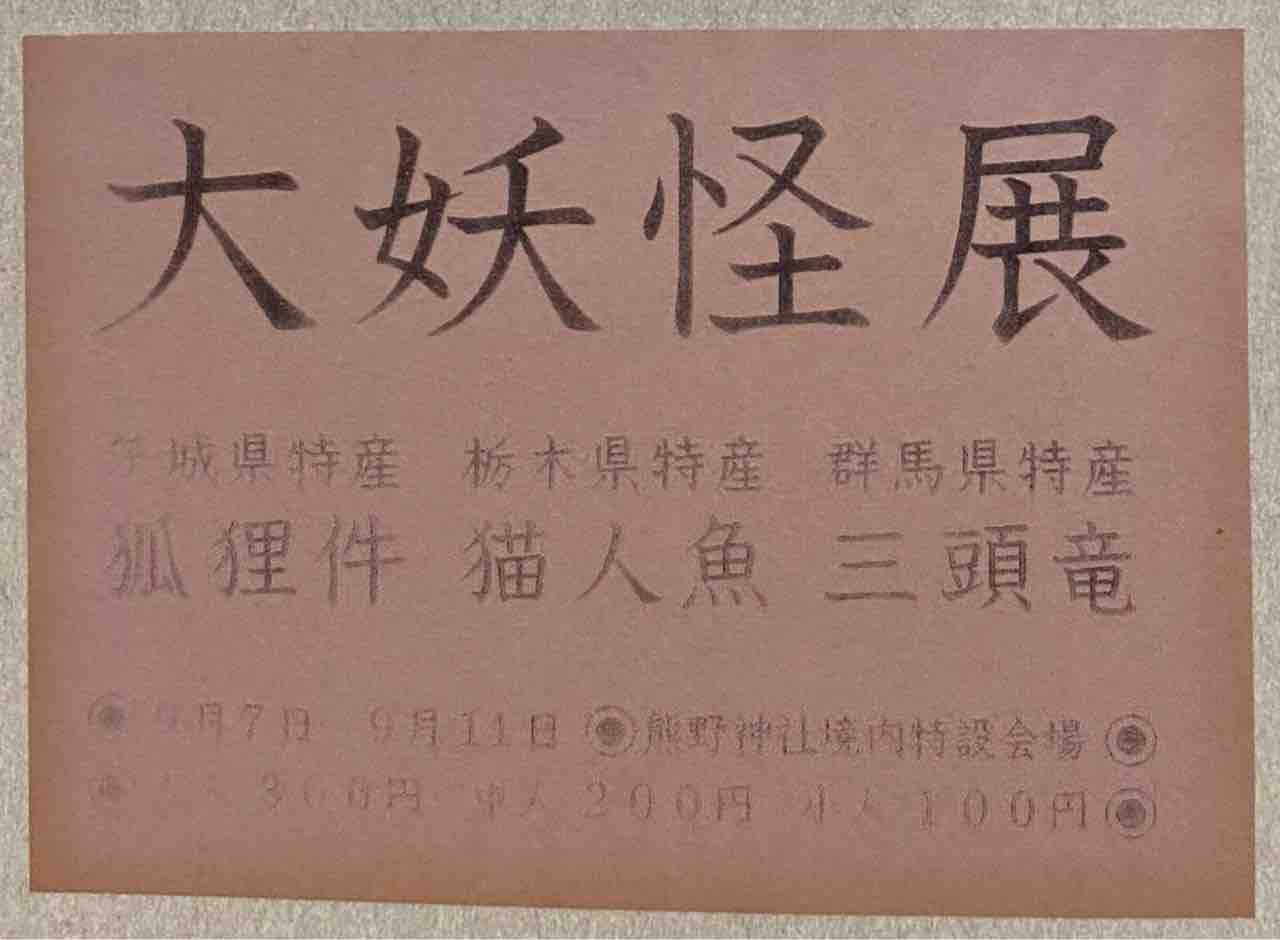 大妖怪展
茨城県特産 栃木県特産 群馬県特産
狐狸件 猫人魚 三頭竜
9月7日 9月11日 熊野神社境内特設会場
300円 中人 200円 小人 100円